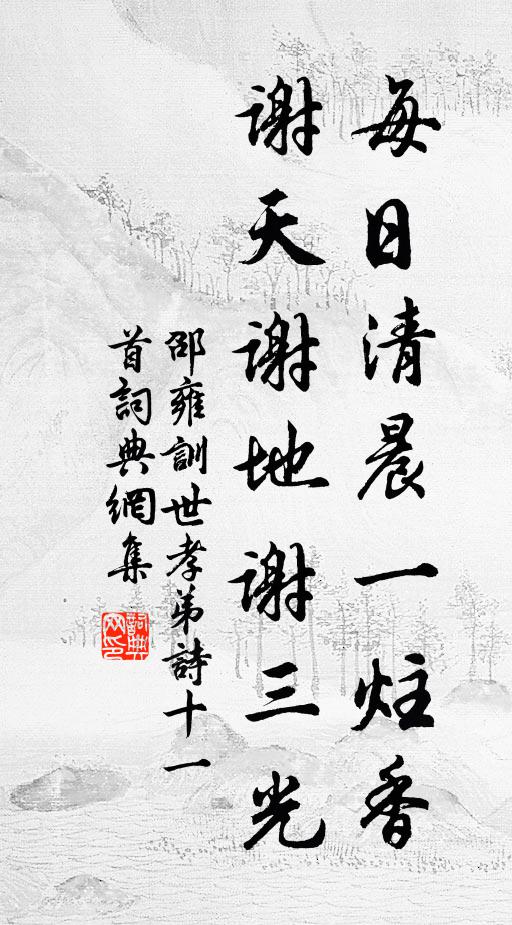 每日清晨一炷香
謝天謝地謝三光
邵雍訓世孝弟詩十一
首詞典網集
詞典網印